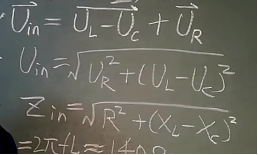 U⃗in = U⃗L - U⃗c + U⃗R
Uin = √(UR² + (UL - Uc)²)
Zin = √(R² + (XL - Xc)²)
= 2πfL ≈